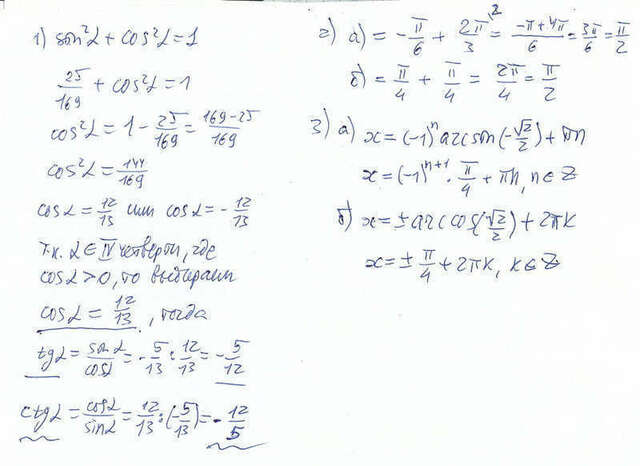 1) sin²α + cos²α = 1
25/169 + cos²α = 1
cos²α = 1 - 25/169 = 169-25/169
cos²α = 144/169
cosα = 12/13 или cosα = - 12/13
т.к. α ∈ IV четверти, где
cosα > 0, то выбираем
cosα = 12/13, тогда
tgα = sinα/cosα = - 5/13 : 12/13 = - 5/12
ctgα = cosα/sinα = 12/13 : (-5/13) = - 12/5
2) а) = - π/6 + 2π/3 ² = -π+4π/6 = 3π/6 = π/2
б) = π/4 + π/4 = 2π/4 = π/2
3) а) x = (-1)ⁿ arcsin(-√2/2) + πn
x = (-1)ⁿ⁺¹ · π/4 + πn, n ∈ Z
б) x = ± arccos(√2/2) + 2πk
x = ± π/4 + 2πk, k ∈ Z